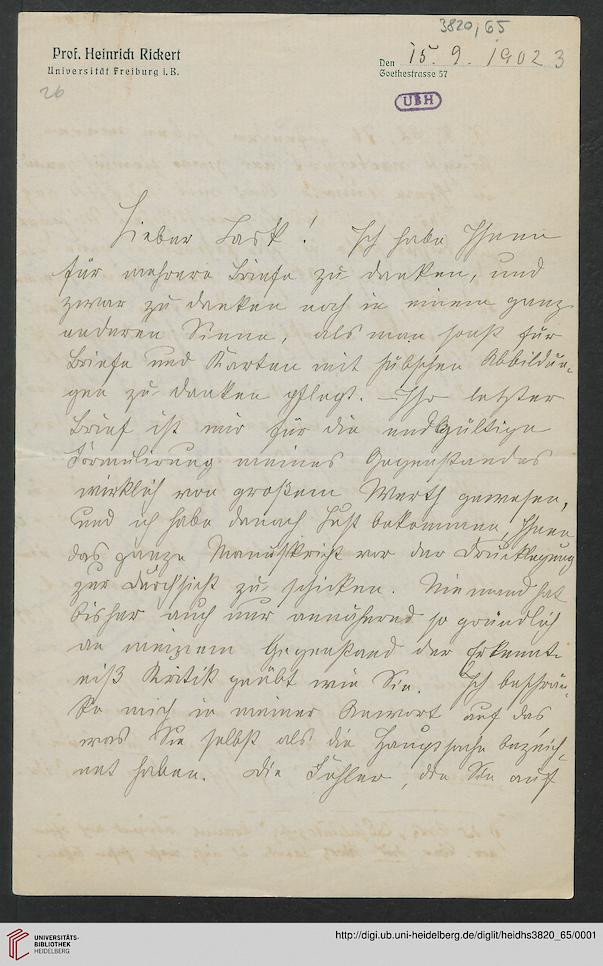 3820,65
Prof. Heinrich Rickert
Universität Freiburg i. B.
Den 15. 9. 1902 3
Goethestrasse 57
26
UBH
Lieber Lask! Ich habe Ihnen
für mehrere Briefe zu danken, und
zwar zu danken noch in einem ganz
anderen Sinne, als man sonst für
Briefe und Karten mit hübschen Abbildun-
gen zu danken pflegt. – Ihr letzter
Brief ist mir für die endgültige
Formulirung meines Gegenstandes
wirklich von großem Werth gewesen,
und ich habe danach Lust bekommen, Ihnen
das ganze Manuskript vor der Drucklegung
zur Durchsicht zu schicken. Niemand hat
bisher auch nur annähernd so gründlich
an meinem Gegenstand der Erkennt-
niß Kritik geübt wie Sie. Ich beschrän-
ke mich in meiner Antwort auf das
was Sie selbst als die Hauptsache bezeich-
net haben. Die Fehler, die Sie auf
UNIVERSITÄTS-
BIBLIOTHEK
HEIDELBERG
http://digi.ub.uni-heidelberg.de/diglit/heidhs3820_65/0001